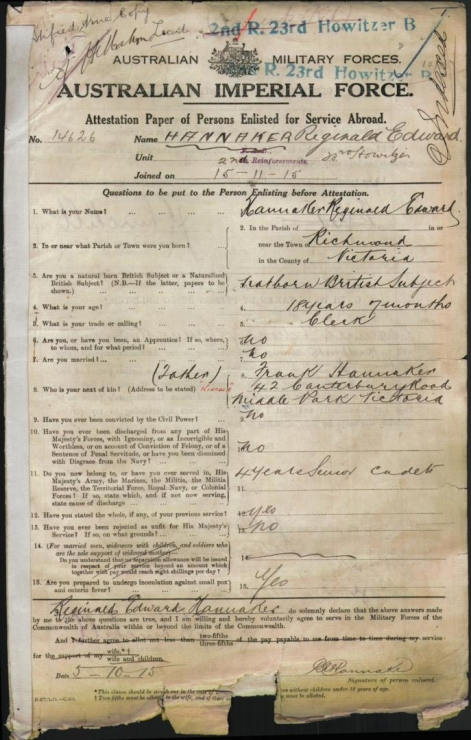 2nd R. 23rd Howitzer B
AUSTRALIAN MILITARY FORCES.
R. 23rd Howitzer B
AUSTRALIAN IMPERIAL FORCE.
Attestation Paper of Persons Enlisted for Service Abroad.
No. 14626 Name HANNAKER Reginald Edward
Unit 2nd Reinforcements 23rd Howitzer
Joined on 15-11-15
Questions to be put to the Person Enlisting before Attestation.
1. What is your Name? ... Hannaker Reginald Edward
2. In or near what Parish or Town were you born? ... 2. In the Parish of in or
near the Town of Richmond
in the County of Victoria
3. Are you a natural born British Subject or a Naturalized
British Subject? (N.B.—If the latter, papers to be
shown.) Natborn British Subject
4. What is your age? 4. 18 years 7 months
5. What is your trade or calling? 5. Clerk
6. Are you, or have you been, an Apprentice? If so, where,
to whom, and for what period? 6. No
7. Are you married? 7. No
(Father)
8. Who is your next of kin? (Address to be stated) 8. Frank Hannaker
42 Canterbury Road
Middle Park Victoria
9. Have you ever been convicted by the Civil Power? 9. No
10. Have you ever been discharged from any part of His
Majesty's Forces, with Ignominy, or as Incorrigible and
Worthless, or on account of Conviction of Felony, or of a
Sentence of Penal Servitude, or have you been dismissed
with Disgrace from the Navy? 10. No
11. Do you now belong to, or have you ever served in, His
Majesty's Army, the Marines, the Militia, the Militia
Reserve, the Territorial Force, Royal Navy, or Colonial
Forces? If so, state which, and if not now serving,
state cause of discharge 11. 4 years Senior Cadets
12. Have you stated the whole, if any, of your previous service? 12. Yes
13. Have you ever been rejected as unfit for His Majesty's
Service? If so, on what grounds? 13. No
14. (For married men, widowers with children, and soldiers who
are the sole support of widowed mother)
Do you understand that no separation allowance will be issued
in respect of your service beyond an amount which
together with pay would reach eight shillings per day? 14.
15. Are you prepared to undergo inoculation against small pox
and enteric fever? 15. Yes
I, Reginald Edward Hannaker do solemnly declare that the above answers made
by me to the above questions are true, and I am willing and hereby voluntarily agree to serve in the Military Forces of the
Commonwealth of Australia within or beyond the limits of the Commonwealth.
And I further agree to allot not less than two-fifths three-fifths of the pay payable to me from time to time during my service
for the support of my wife.*†
wife and children.
Date 5-10-15
Signature of person enlisted.
* This clause should be struck out in the case of
† Two fifths must be allotted to the wife, and if there